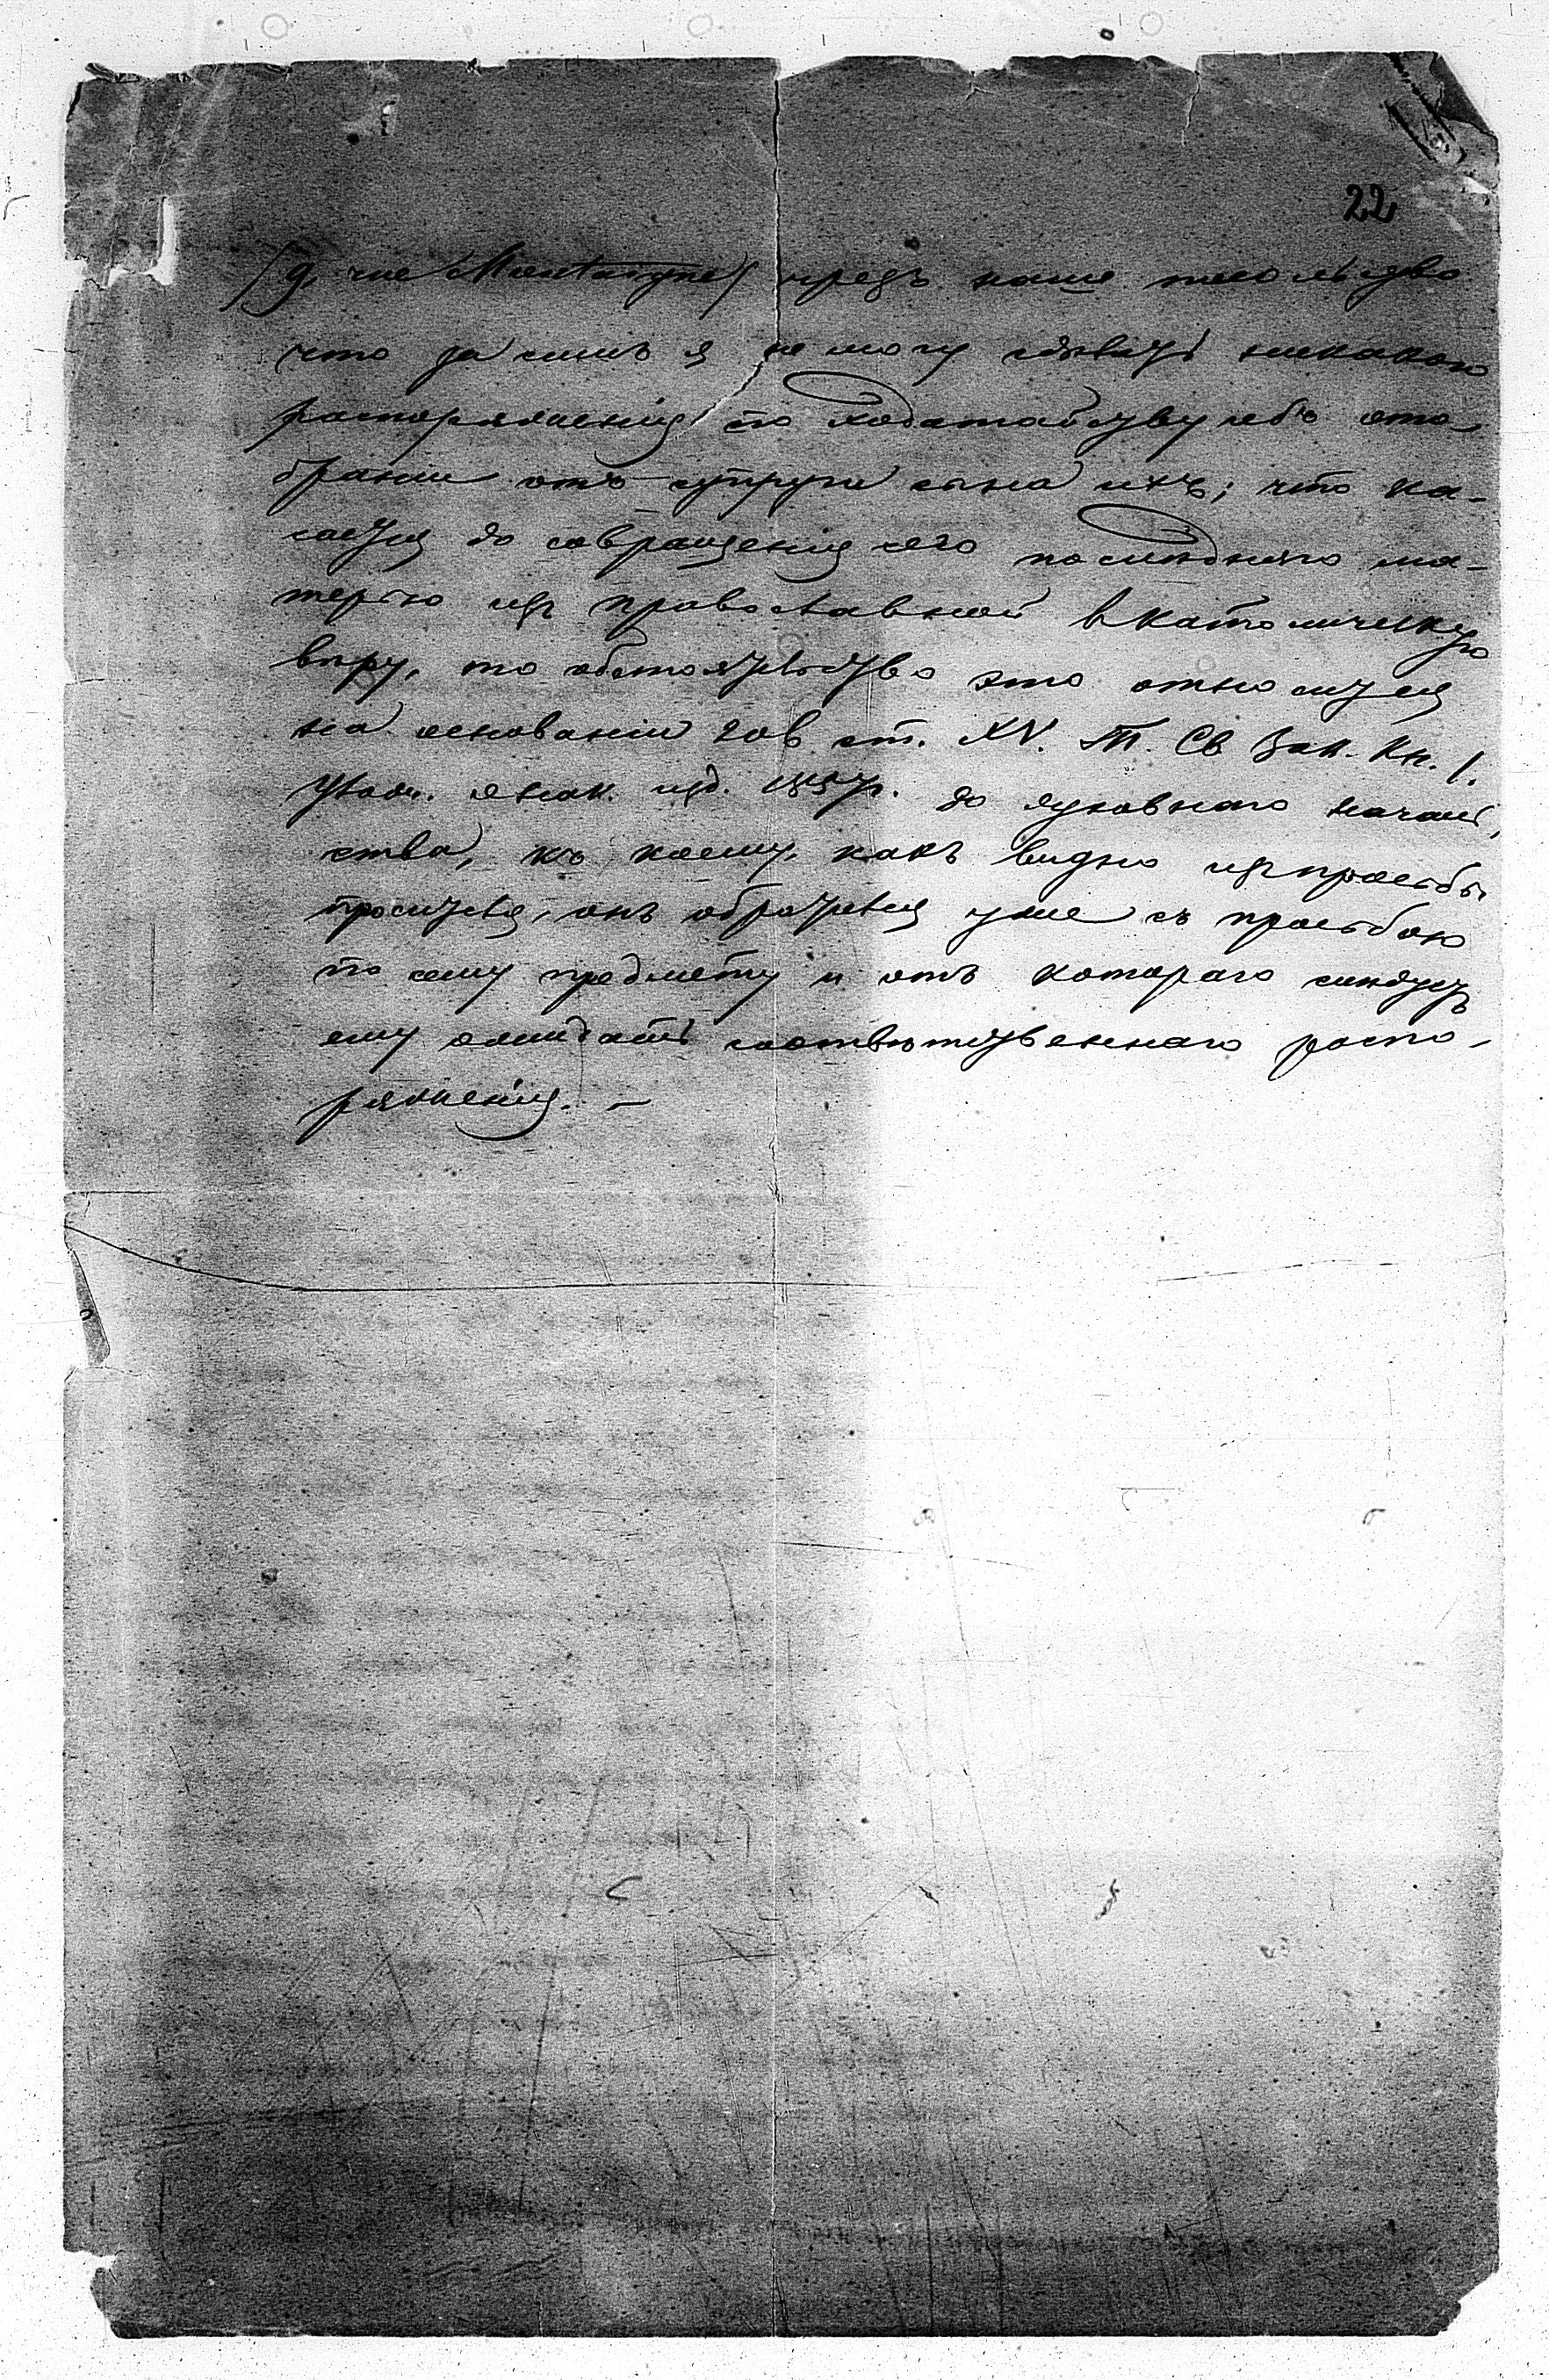 22
(9, rue Montaigne) чрезъ наше посольство
что за симъ я не могу сдѣлать никакого
распоряженія по ходатайству объ ото-
браніи отъ супруги сына ихъ; что ка-
сается до совращенія сего послѣдняго ма-
терью изъ православной в католическую
вѣру, то обстоятельство это относится
на основаніи ст. XV. Т. Св Зак. Кн. 1.
Улож. о наказ. изд. до духовнаго началь-
ства, къ коему, какъ видно изъ просьбы
просителя, онъ обратился уже съ просьбою
по сему предмету и отъ котораго слѣдуетъ
ему ожидать соотвѣтственнаго распо-
ряженія. —